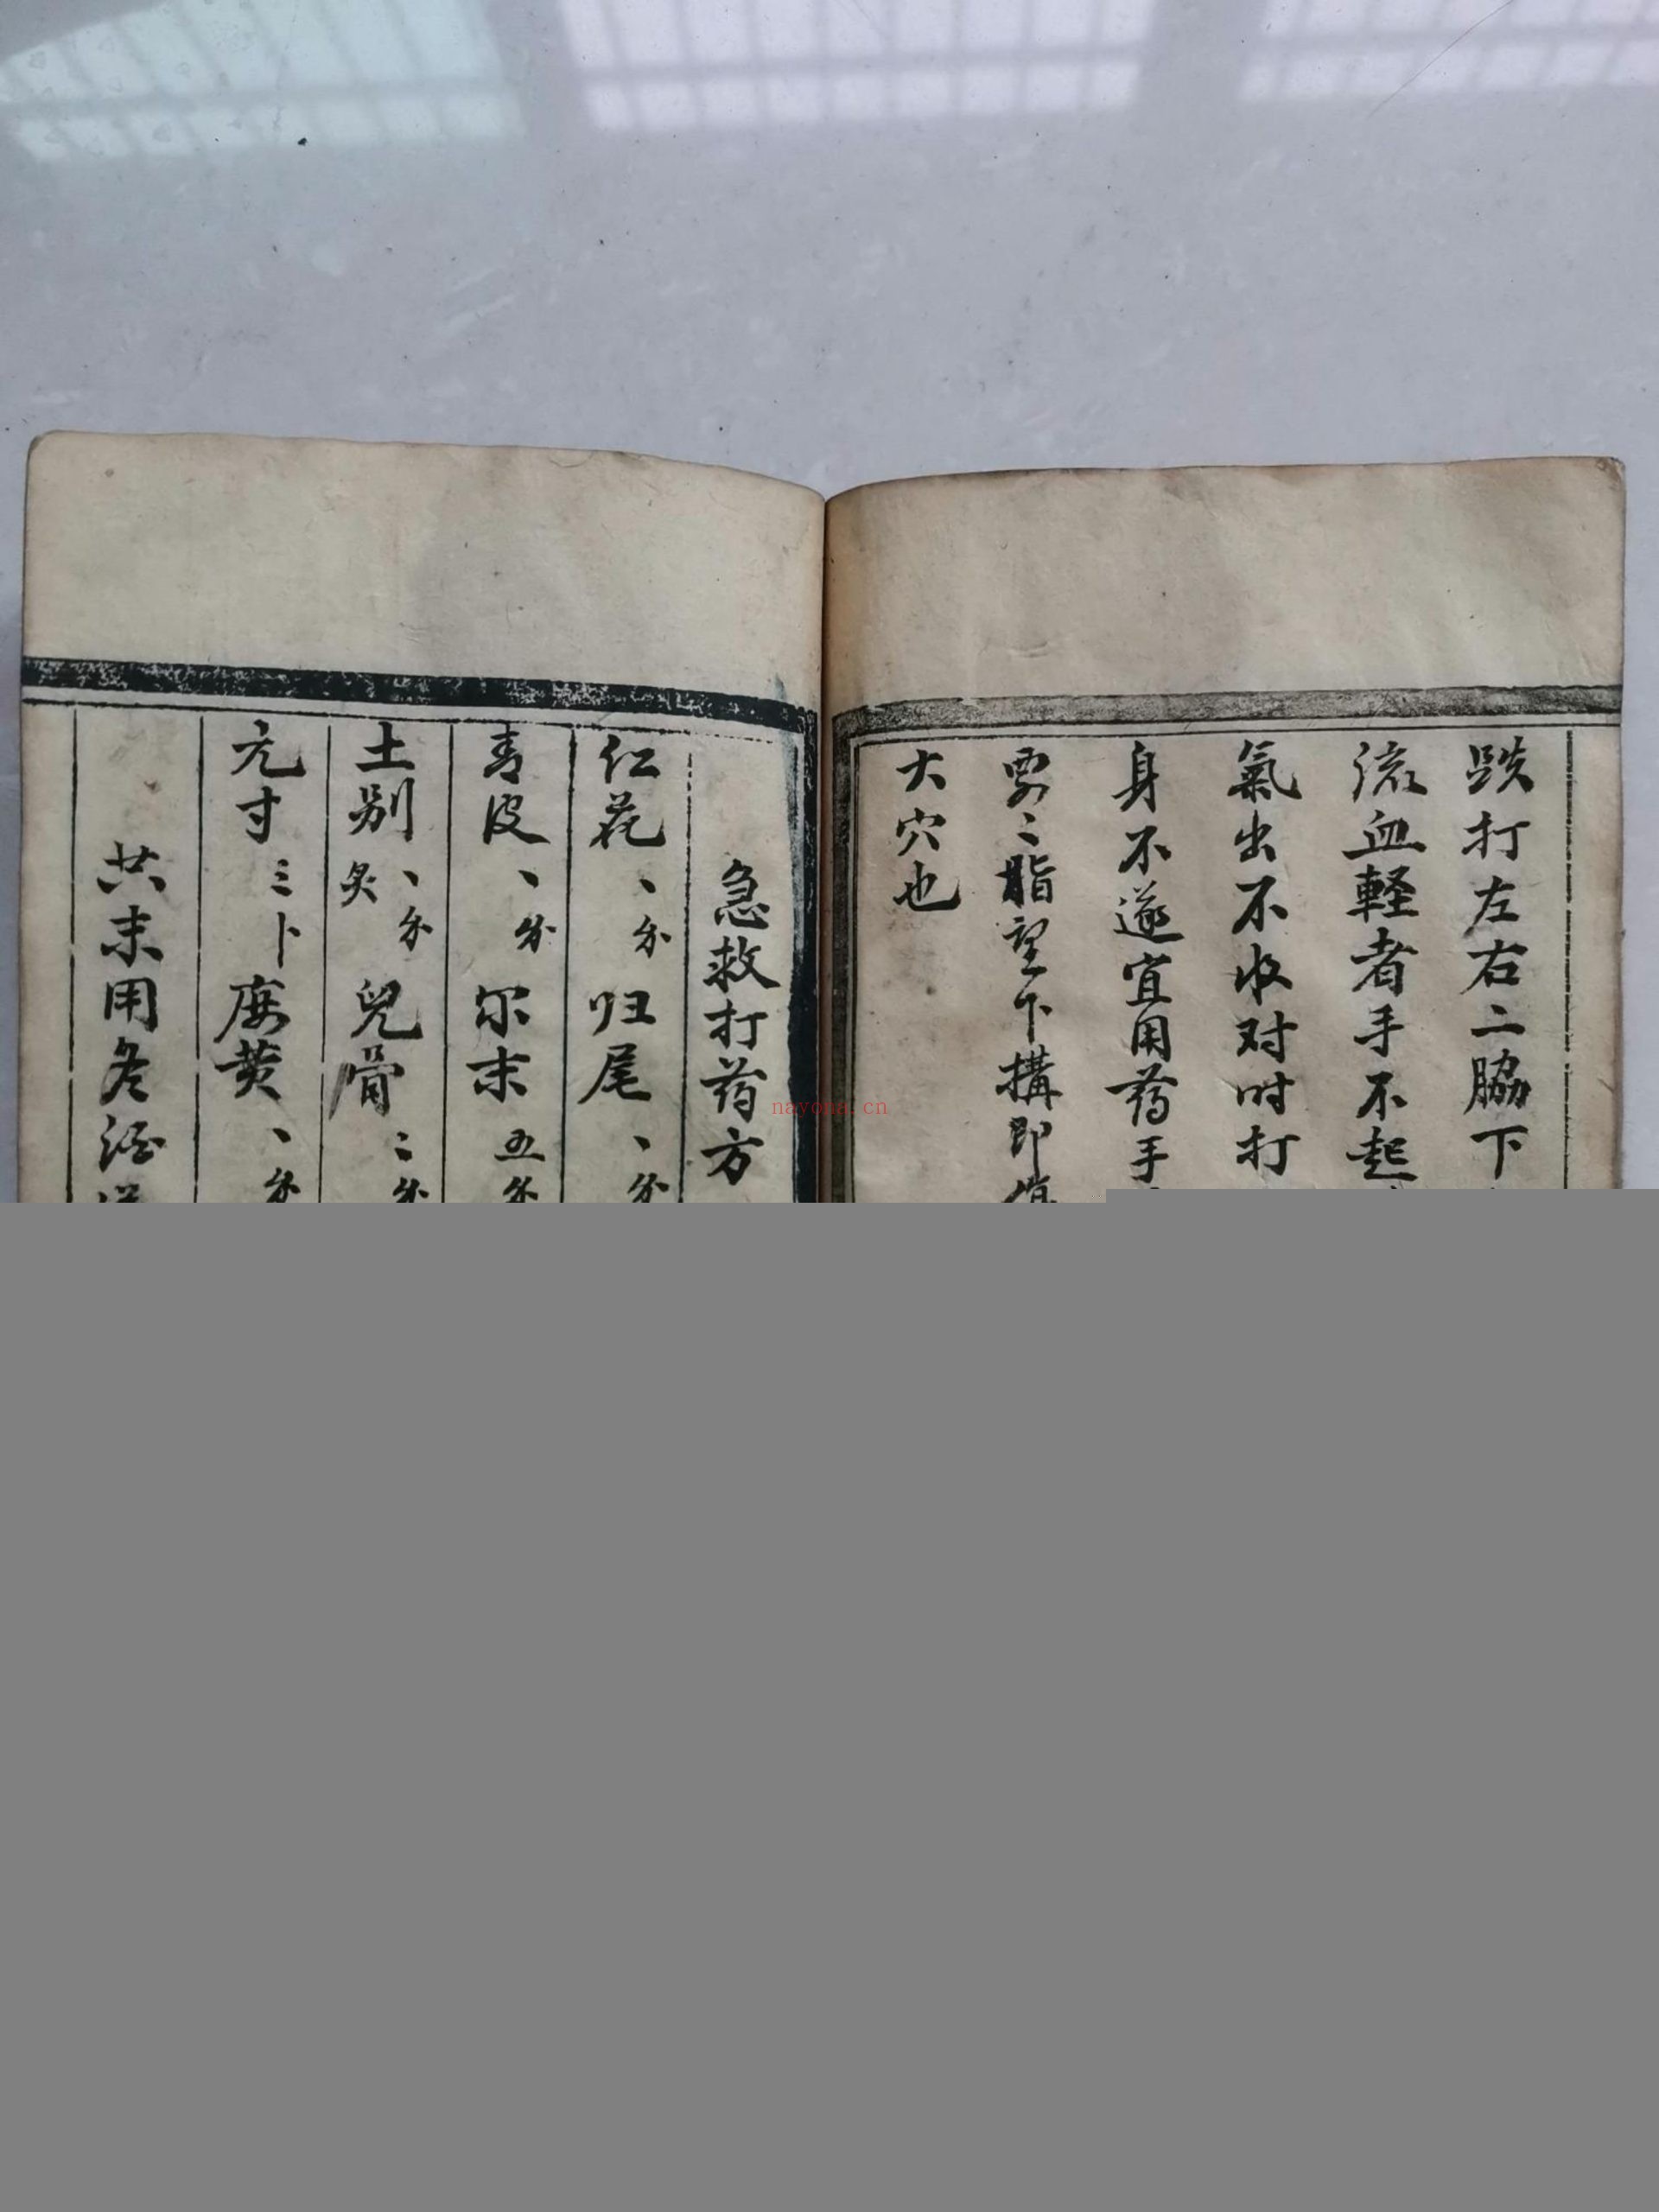 跌打左右二脇下
流血軽者手不起
氣出不收对时打
身不遂宜用药手
要〻脂望下搆即
大穴也
急救打药方
仁花、分 归尾、分
青皮、分 尔末五分
土别、分 炙 兒骨二分
元寸三卜 麻黄、分
共末用冬酒送
nayona.cn